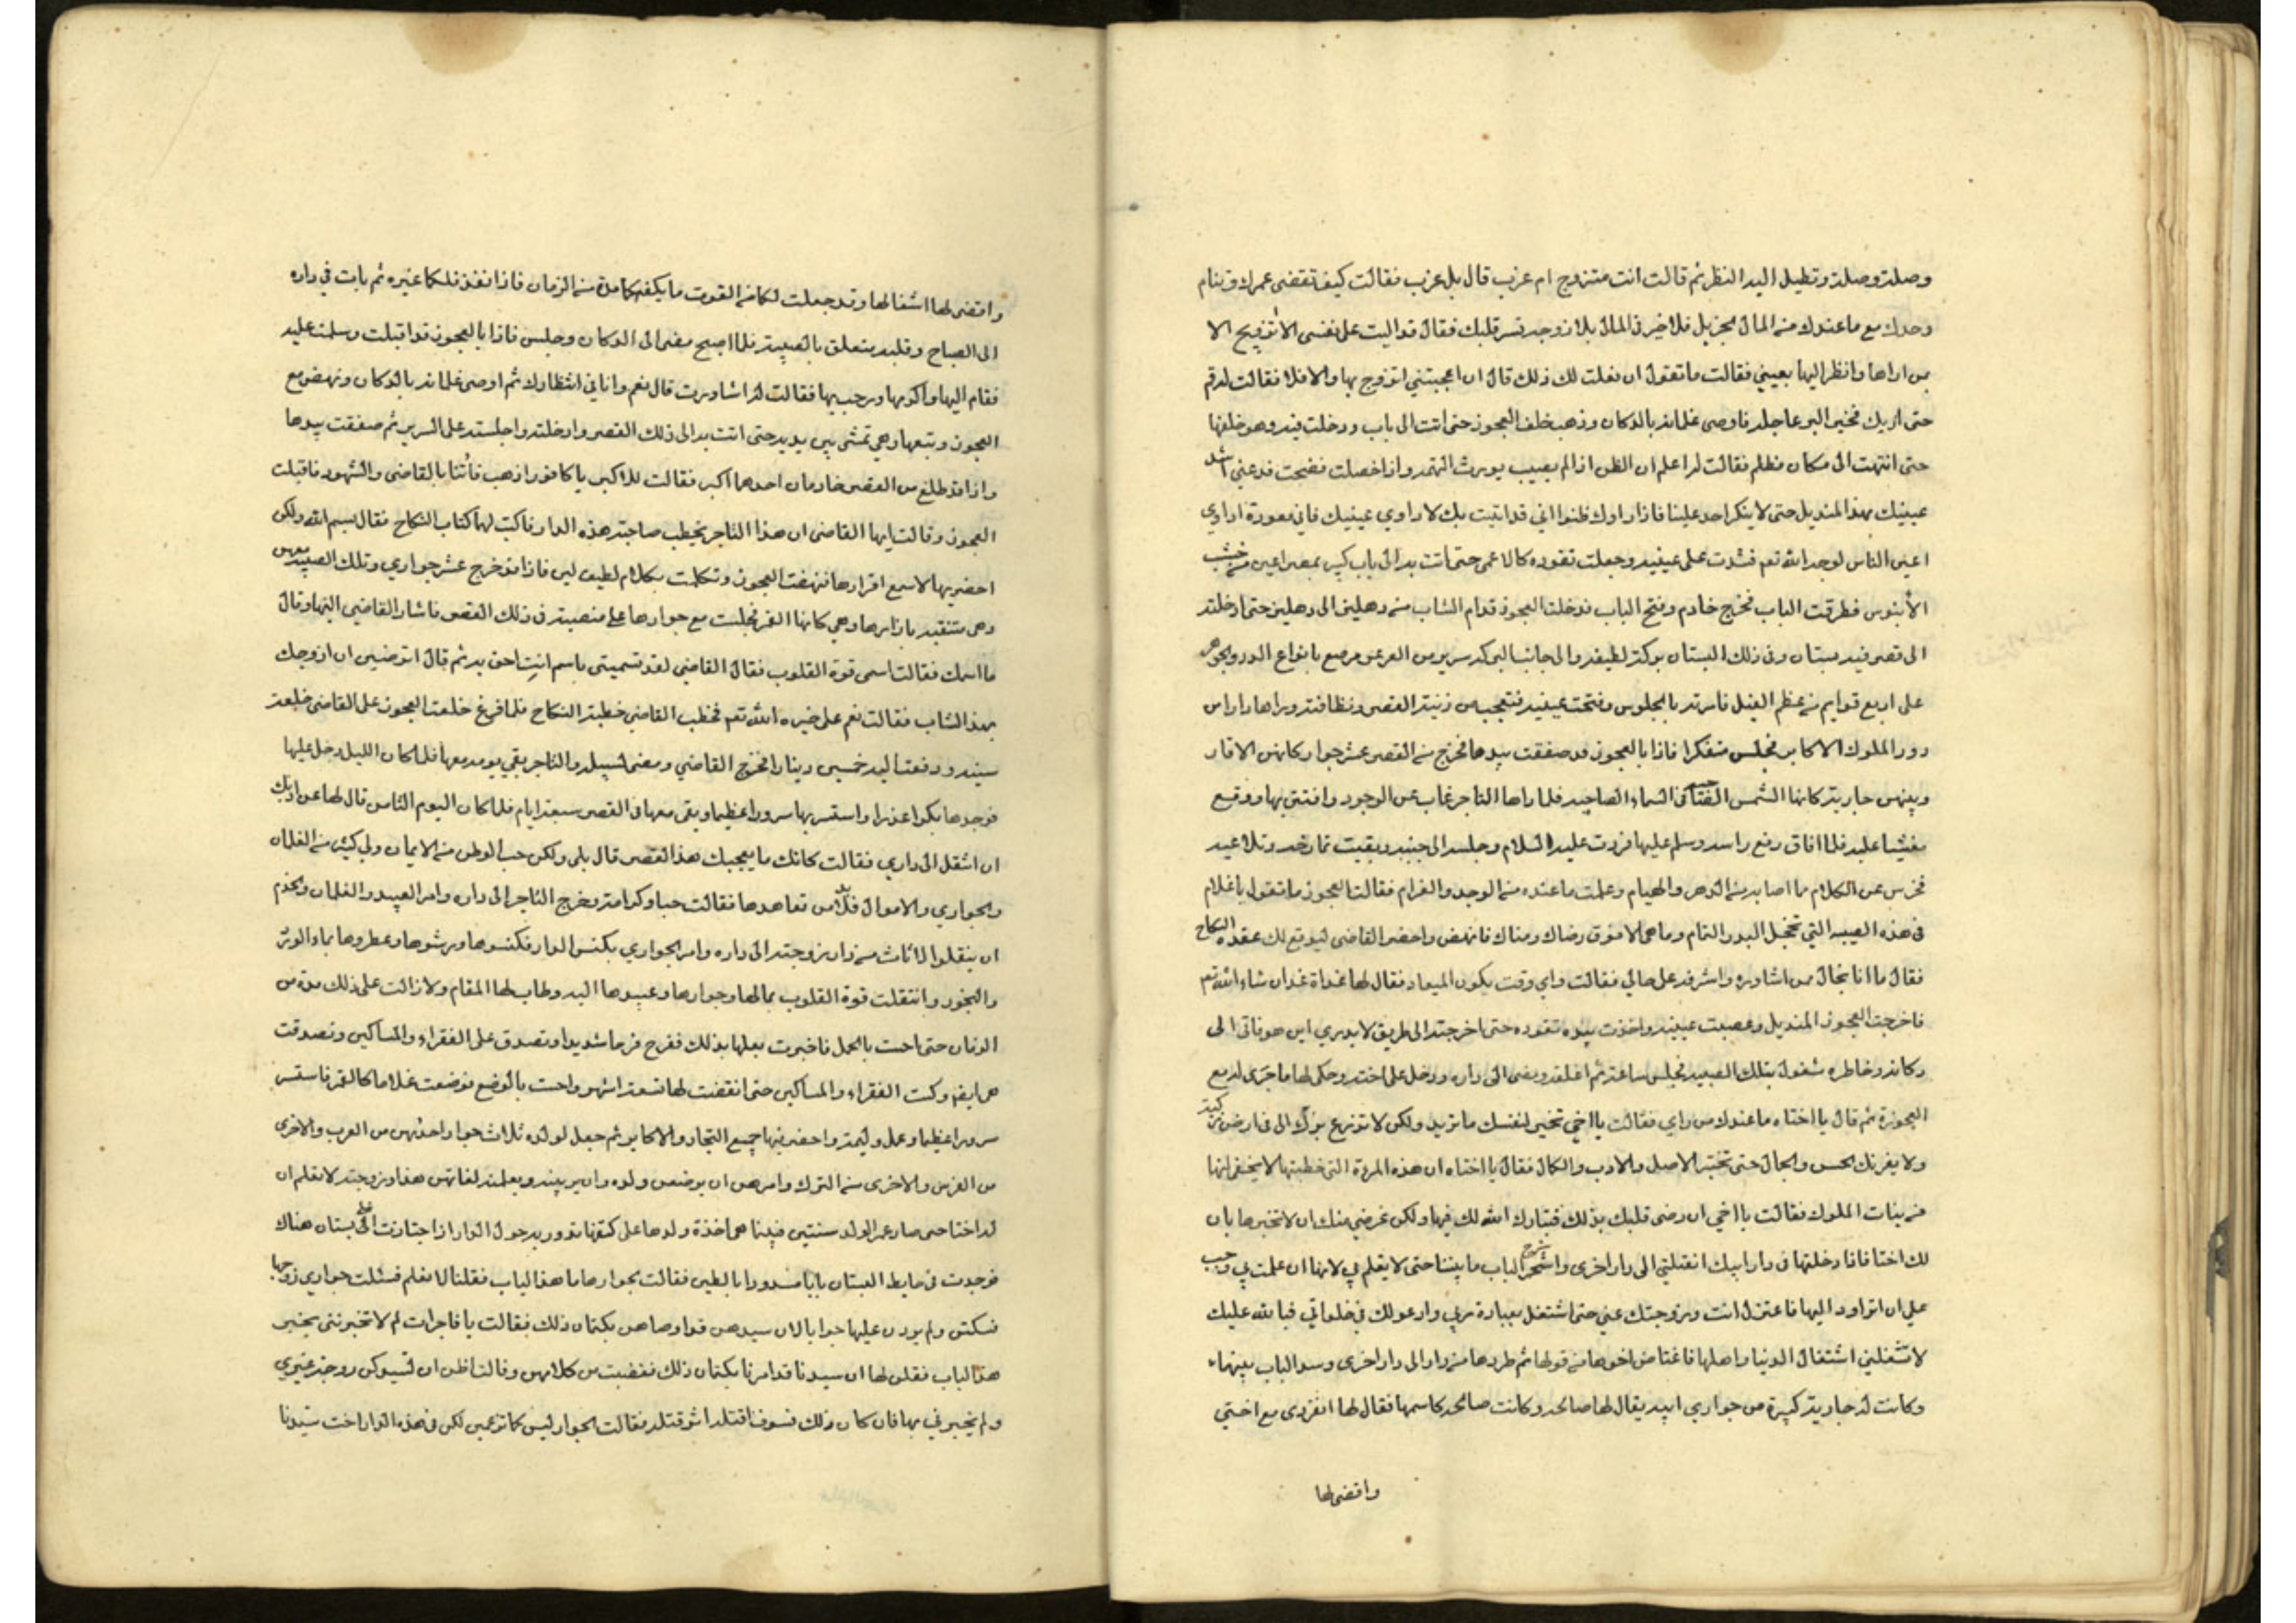 وصلته وصلته وتطيل اليه النظر ثم قالت انت متزوج ام عزب قال بل عزب فقالت كيف تقضى عمرك وتنام
وحدك مع ما عندك من المال الجزيل فلا خير فى المال بلا زوجه تسر قلبك فقال قد اليت على نفسى الا اتزوج الا
بمن اراها وانظر اليها بعينى فقالت ما تقول ان فعلت لك ذلك قال ان اعجبتنى اتزوج بها والا فلا فقالت له قم
حتى اريك فخير البر عاجله فاوصى غلمانه بالدكان وذهب خلف العجوز حتى اتت الى باب ودخلت فيه وهو خلفها
حتى انتهت الى مكان مظلم فقالت له اعلم ان الظن اذا لم يصيب يورث التهمه واذا حصلت فضحت فدعنى اشد
عينيك بهذا المنديل حتى لا ينكر احد علينا فاذا راوك ظنوا انى قد اتيت بك لاداوي عينيك فانى معودة اداوي
اعين الناس لوجه الله تعم فشدت على عينيه وجعلت تقوده كالاعمى حتى اتت به الى باب كبير بمصراعين من خشب
الأبنوس فطرقت الباب فخرج خادم وفتح الباب فدخلت العجوز قدام الشاب من دهليز الى دهليز حتى ادخلته
الى قصر فيه بستان وفى ذلك البستان بركة لطيفه والى جانب البركه سرير من العرعر مرصع بانواع الدر والجوهر
على اربع قوايم من عظم الفيل فامرته بالجلوس وفتحت عينيه فتعجب من زينة القصر ونظافته وبراها داراس
دور الملوك الاكابر فجلس متفكرا فاذا بالعجوز قد صفقت بيدها فخرج من القصر عشر جوار كانهن الاقمار
وبينهن جارية كانها الشمس فى السماء الصاحيه فلما راها التاجر غاب عن الوجود وافتتن بها ووقع
مغشيا عليه فلما افاق رفع راسه وسلم عليها فردت عليه السلام وجلست الى جنبه وبقيت تمازحه وتلاعبه
فخرس عن الكلام مما اصابه من الدهر والهيام وعلمت ما عنده من الوجد والغرام فقالت العجوز ما تقول يا غلام
فى هذه الصبيه التى تخجل البدور التمام وما هى الا فوق رضاك ومناك فانهض واحضر القاضى ليوقع لك عقدة النكاح
فقال ما انا بحال من اشاوره واشرفه على حالي فقالت واي وقت يكون الميعاد فقال لها غداة غد ان شاء الله تعم
فاخرجت العجوز المنديل وعصبت عينيه واخذت بيده تقوده حتى اخرجته الى طريق لا يدري اين هو فاتى الى
دكانه وخاطره مشغول بتلك الصبيه فجلس ساعة ثم اغلقه ومضى الى داره ودخل على اخته وحكى لها ما جرى له مع
العجوزة ثم قال يا اختاه ما عندك من راي فقالت يا اخى تخير لنفسك ما تريد ولكن لا تزرع بزرك الا فى ارض تزكيه
ولا يغرنك الحسن والجمال حتى تختبر الاصل والادب والكمال فقال يا اختاه ان هذه المرءة التى خطبتها لا يخفى انها
من بنات الملوك فقالت يا اخى ان رضى قلبك بذلك فتبارك الله لك فيها ولكن غرضى منك ان لا تخبرها بان
لك اختا فاذا دخلتها فى دار ابيك انقلنى الى دار اخرى الباب ما بيننا حتى لا يعلم بى لانها ان علمت بى وجب
على ان اتردد اليها فاعتزل انت وزوجتك عنى حتى اشتغل بعبادة ربى وادعو لك فى خلواتى فبالله عليك
لا تشغلنى اشتغال الدنيا واهلها فاغتاض اخوها من قولها ثم طردها من دار الى دار اخرى وسد الباب بينهما
وكانت له جارية كبيرة من جواري ابيه يقال لها صالحه وكانت صالحه كاسمها فقال لها انفردى مع اختي
واقضى لها
واقضى لها اشغالها وقد جعلت لكما من القوت ما يكفيكما مدة من الزمان فاذا نفذ فلكما غيره ثم بات فى داره
الى الصباح وقلبه متعلق بالصبية فلما اصبح مضى الى الدكان وجلس فاذا بالعجوز قد اقبلت وسلمت عليه
فقام اليها واكرمها ورحب بها فقالت له اشاورت قال نعم وانا فى انتظارك ثم اوصى غلمانه بالدكان ونهض مع
العجوز وتبعها وهى تمشى بين يديه حتى اتت به الى ذلك القصر وادخلته واجلسته على السرير ثم صفقت بيدها
واذا قد طلع من القصر خادمان احدهما اكبر فقالت للاكبر يا كافور اذهب فأتنا بالقاضى والشهود فاقبلت
العجوز وقالت ايها القاضى ان هذا التاجر يخطب صاحبة هذه الدار فاكتب لهما كتاب النكاح فقال بسم الله ولكن
احضريها لاسمع اقرارها فنهضت العجوز وتكلمت بكلام لطيف لين فاذا قد خرج عشر جواري وتلك الصبيه معهن
وهى متنقبه بازارها وهى كانها القمر فجلست مع جوارها على منصة فى ذلك القصر فاشار القاضى اليها وقال
ما اسمك فقالت اسمى قوة القلوب فقال القاضى لقد تسميتى باسم انتِ احق به ثم قال اترضين ان ازوجك
بهذا الشاب فقالت نعم على خيره الله تعم فخطب القاضى خطبة النكاح فلما فرغ خلعت العجوز على القاضى خلعة
سنيه ودفعت اليه خمسين دينارا فخرج القاضى ومضى لسبيله والتاجر بقي يومه معها فلما كان الليل دخل عليها
فوجدها بكرا عذرا واستسر بها سرورا عظيما وبقى معها فى القصر سبعة ايام فلما كان اليوم الثامن قال لها عن اذنك
ان انتقل الى داري فقالت كانك ما يعجبك هذا القصر قال بلى ولكن حب الوطن من الايمان ولى كثير من الغلمان
والجواري والاموال فلا بد من تعاهدها فقالت حبا وكرامة وخرج التاجر الى داره وامر العبيد والغلمان والخدم
ان ينقلوا الاثاث من دار زوجته الى داره وامر الجواري بكنس الدار فكنسوها ورشوها وعطروها بماء الورد
والبخور وانتقلت قوة القلوب بمالها وجوارها وعبيدها اليه وطاب لها المقام ولا زالت على ذلك مدة من
الزمان حتى احست بالحمل فاخبرت بعلها بذلك ففرح فرحا شديدا وتصدق على الفقراء والمساكين وتصدقت
هى ايضا وكست الفقراء والمساكين حتى انقضت لها تسعة اشهر واحست بالوضع فوضعت غلاما كالقمر فاستسر
سرورا عظيما وعمل وليمة واحضر فيها جميع التجار والاكابر ثم جعل لولده ثلاث جوار واحدتهن من العرب والاخرى
من الفرس والاخرى من الترك وامرهن ان يرضعن ولده وان يربينه ويعلمنه لغاتهن هذا وزوجته لا تعلم ان
له اختا حتى صار عمر الولد سنتين فبينا هى اخذة ولدها على كتفها تدور به حول الدار اذا اجتازت الى بستان هناك
فوجدت فى حايط البستان بابا مسدودا بالطين فقالت لجوارها ما هذا الباب فقلنا لا نعلم فسئلت جواري زوجها
فسكتن ولم يردن عليها جوابا لان سيدهن قد اوصاهن بكتمان ذلك فقالت يا فاجرات لم لا تخبرننى بخبر
هذا الباب فقلن لها ان سيدنا قد امرنا بكتمان ذلك فغضبت من كلامهن وقالت اظن ان لسيدكن زوجة غيري
ولم يخبرنى بها فان كان ذلك فسوف اقتله اشر قتله فقالت الجوار ليس كما تزعمين لكن فى هذه الدار اخت سيدنا